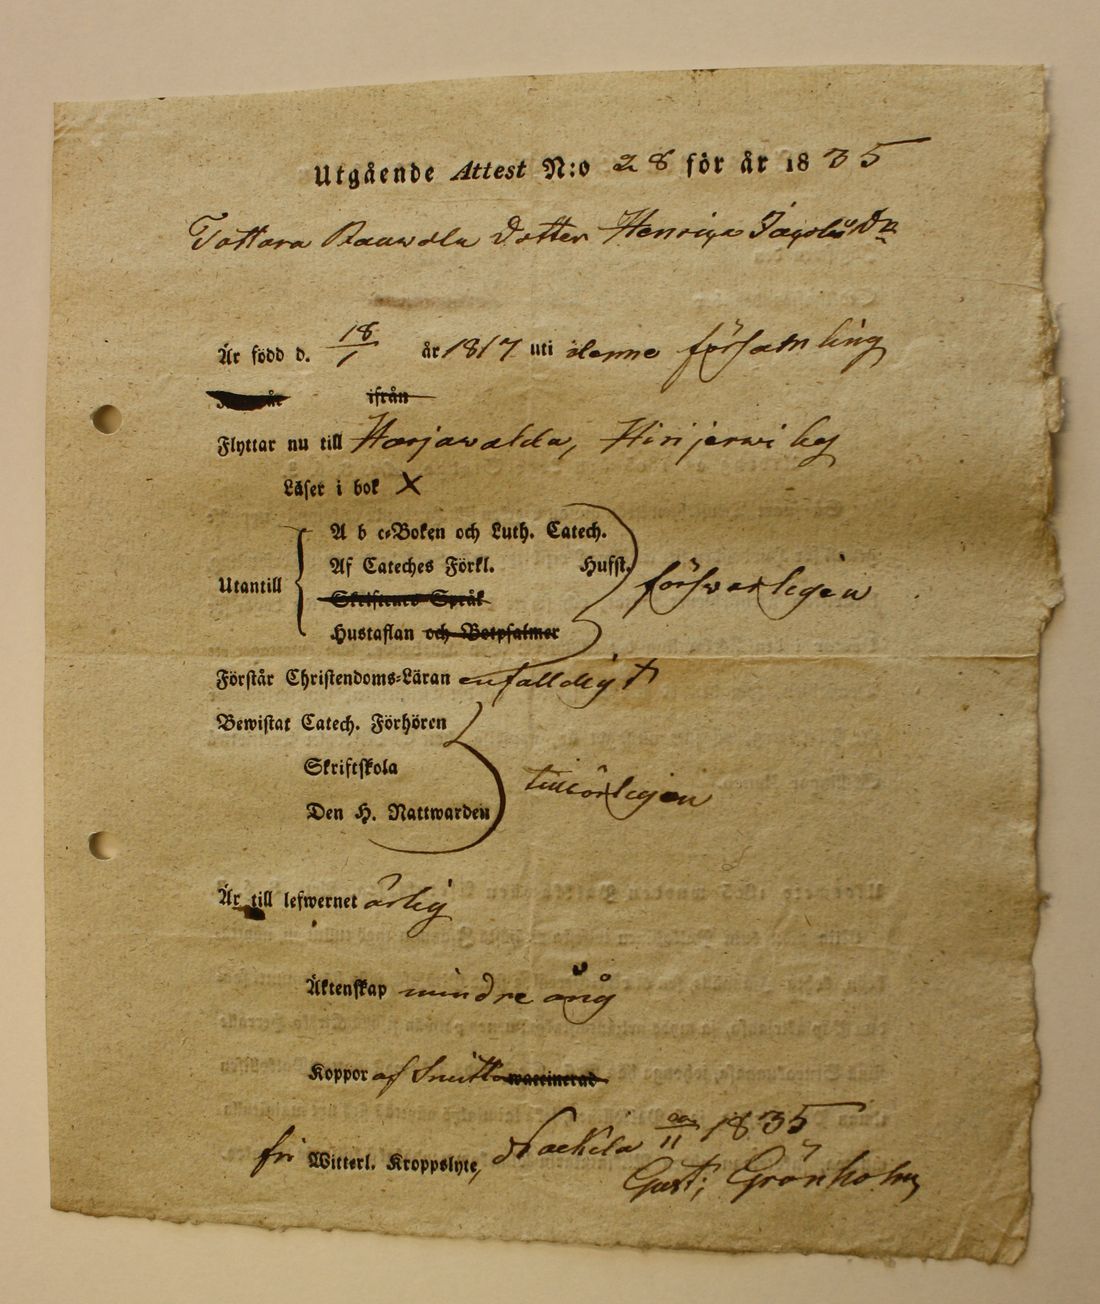 Utgående Attest N:o 28 för år 1835
Tottara dotter Henrica
Är född d. 18/1 år 1817 uti denne församling
ifrån
Flyttar nu till Harjawalda, Hirijerwi by
Läser i bok X
A b c-Boken och Luth. Catech.
Af Cateches Förkl. Husst.
Utantill försvarligen
Skriftenes Språk
Hustaflan och Botpsalmer
Förstår Christendoms-Läran enfalldigt
Bewistat Catech. Förhören
Skriftskola
tillbörligen
Den H. Nattwarden
Är till lefwernet ärlig
Äktenskap mindre årig
Koppor af Smitta waccinerad
fri Witterl. Kroppslyte, Nackila 11 1835
Gust; Grönholm